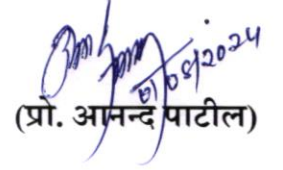 01/08/2024
(प्रो. आनन्द पाटील)